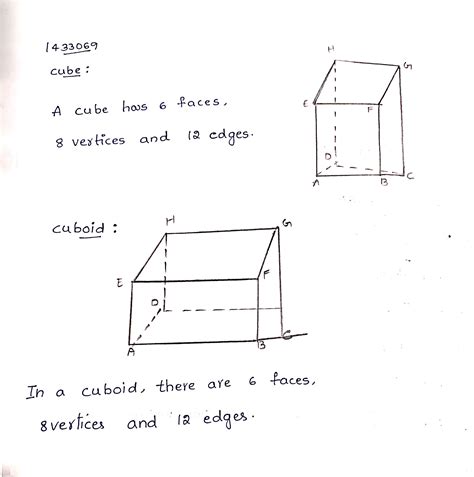 1433069
cube :
A cube has 6 faces,
8 vertices and 12 edges.
H
G
E
F
D
A
B
C
cuboid :
H
G
E
F
D
A
B
C
In a cuboid, there are 6 faces,
8 vertices and 12 edges.